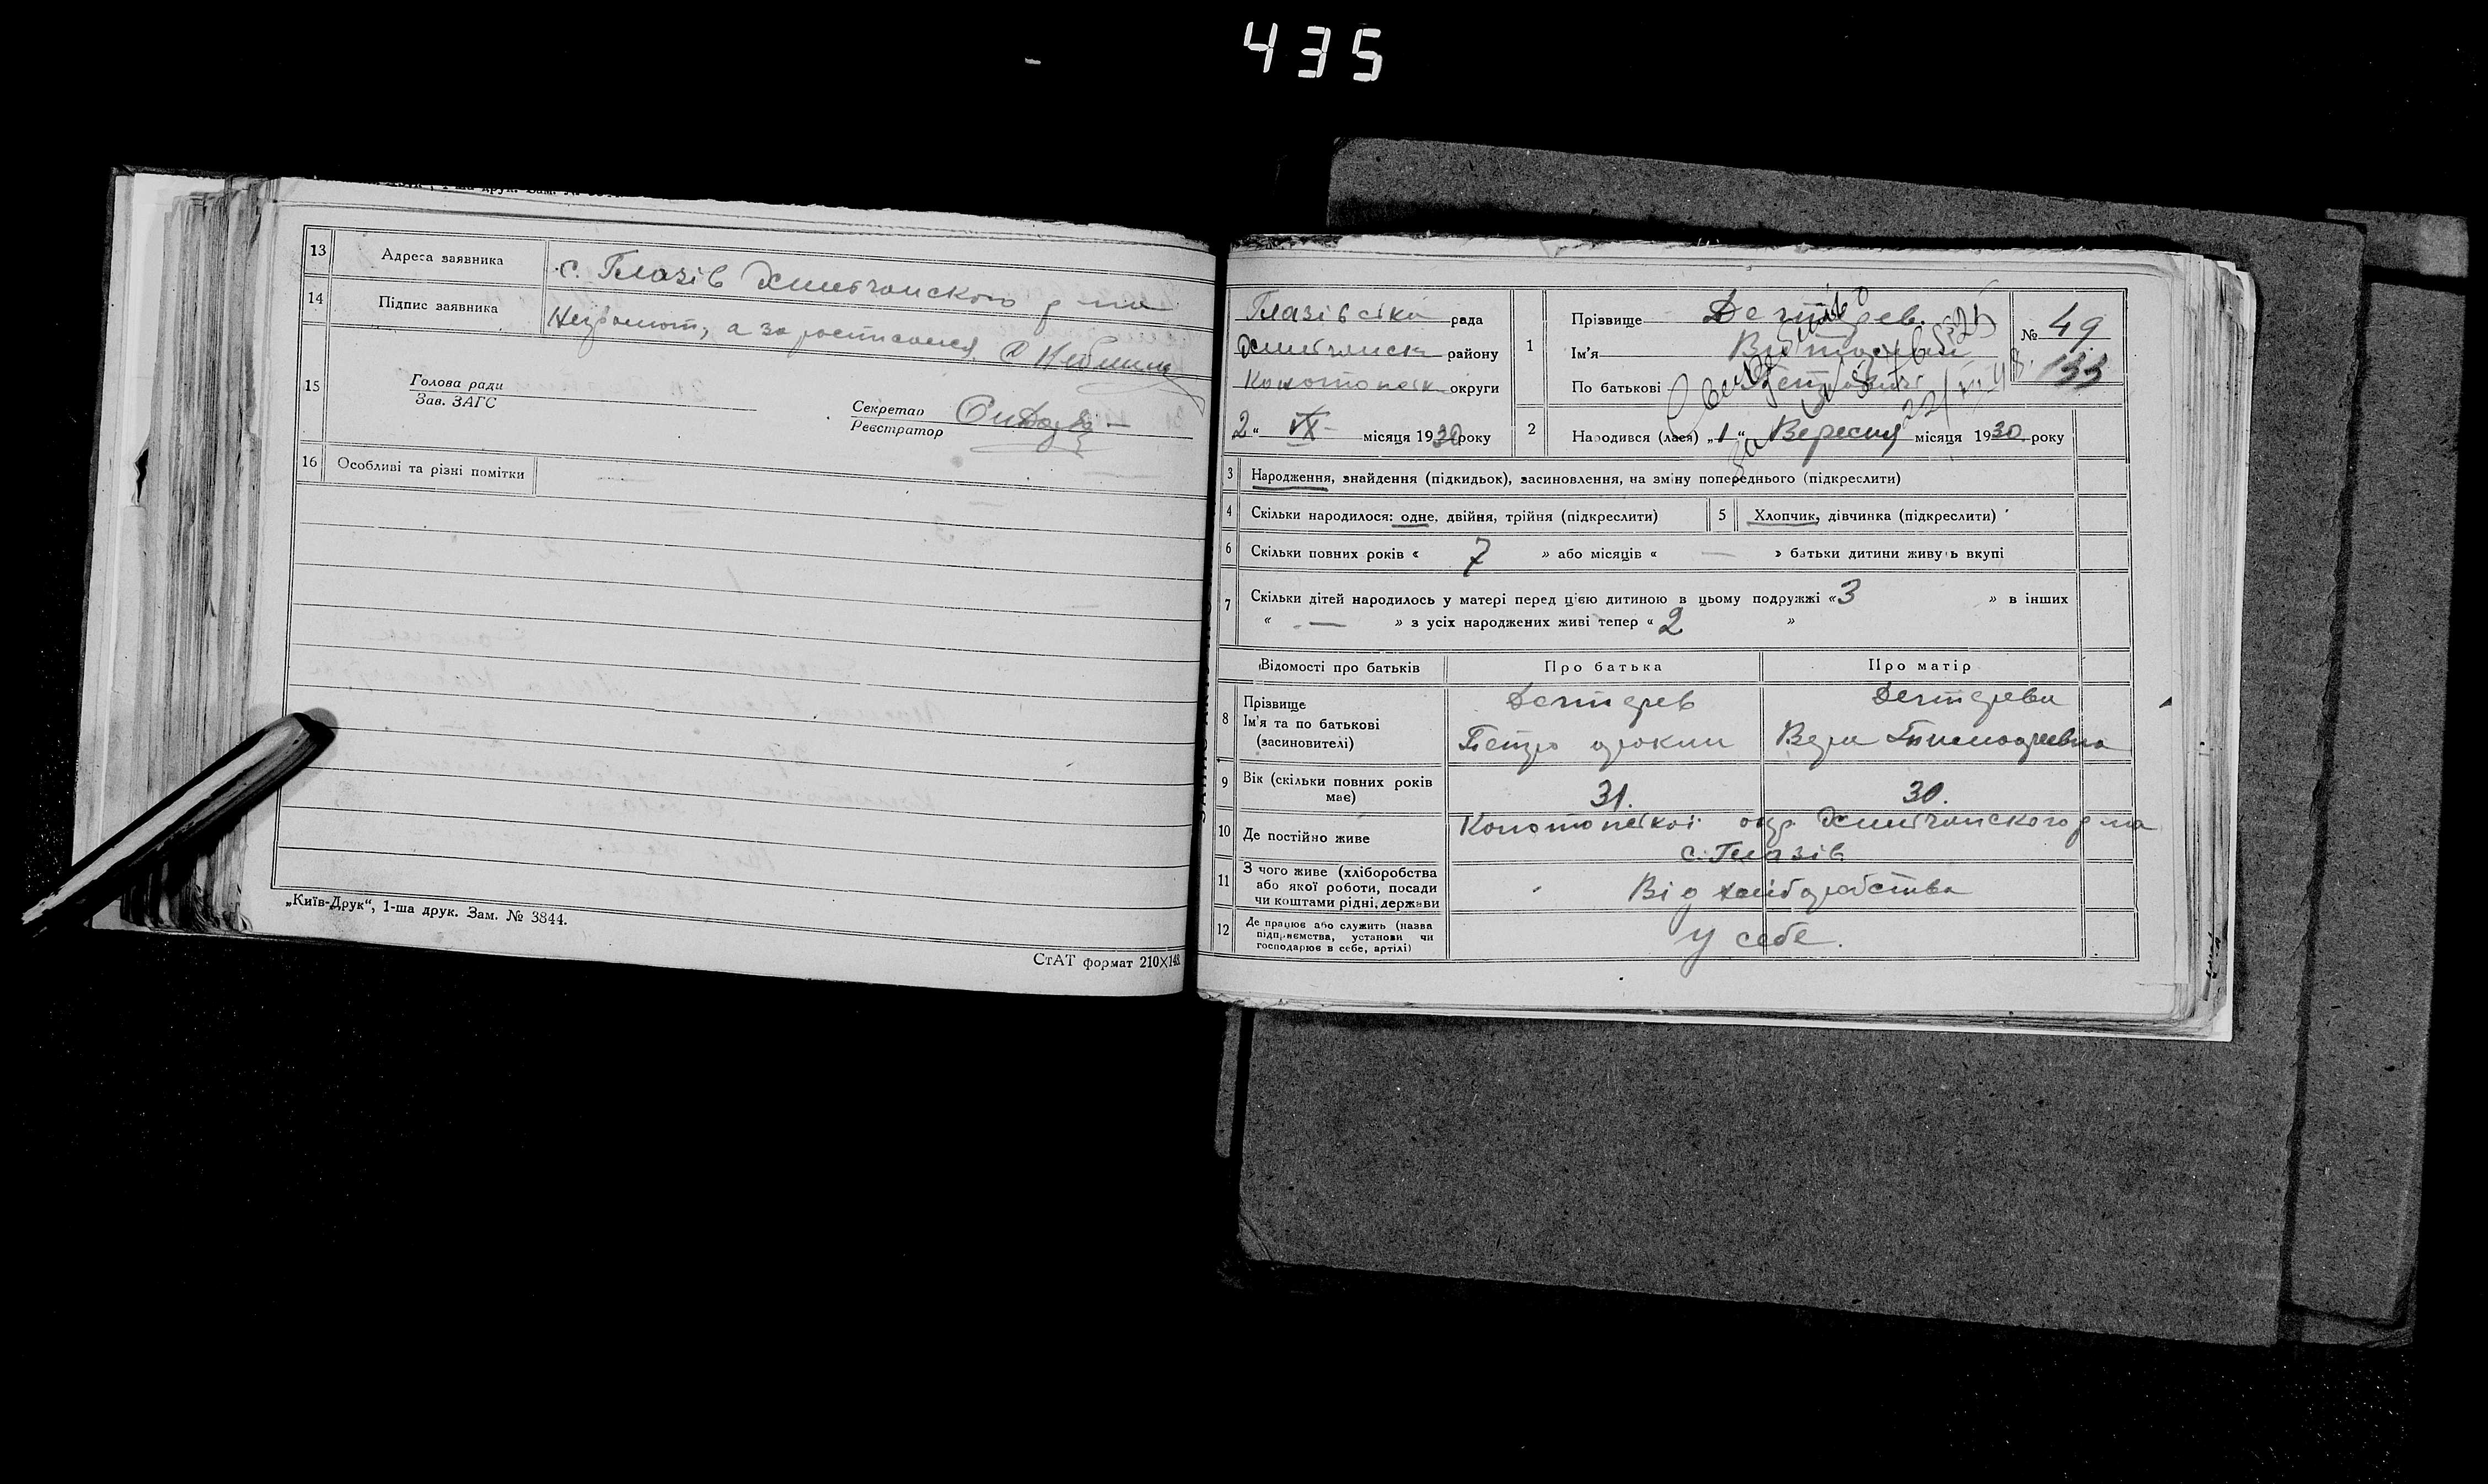 435
13 Адреса заявника с. Глазів Хмельчанского р-на
14 Підпис заявника Неграмот, а за ростисался
15 Голова ради
Зав. ЗАГС
Секретар
Реєстратор
16 Особливі та різні помітки —
„Київ-Друк“, 1-ша друк. Зам. № 3844.
СтАТ формат 210×148
Глазівсіка рада
району
Конотопськ округи
2 “ IX місяця 1930 року
1 Прізвище
Ім'я
По батькові
№ 49
133
2 Народився (лася) „1“ Вересня місяця 1930 року
3 Народження, знайдення (підкидьок), засиновлення, на зміну попереднього (підкреслити)
4 Скільки народилося: одне, двійня, трійня (підкреслити)
5 Хлопчик, дівчинка (підкреслити)
6 Скільки повних років « 7 » або місяців « — » батьки дитини живуть вкупі
7 Скільки дітей народилось у матері перед цією дитиною в цьому подружжі «3 » в інших
« — » з усіх народжених живі тепер «2 »
Відомості про батьків Про батька Про матір
8 Прізвище Дегтярев Дегтярева
Ім'я та по батькові Петро Вера
(засиновителі)
9 Вік (скільки повних років має) 31. 30.
10 Де постійно живе Конотопської окр р-на
с. Глазів
11 З чого живе (хліборобства
або якої роботи, посади
чи коштами рідні, держави Від хліборобства
12 Де працює або служить (назва
підприємства, установи чи
господарює в себе, артілі) у себе.